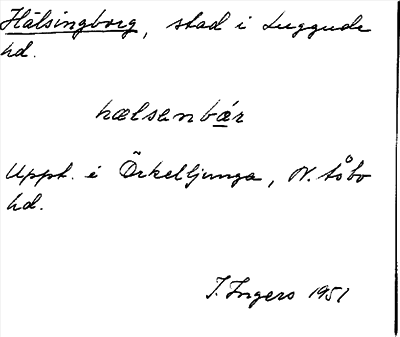 Hälsingborg, stad i Luggude
hd.
hælsenbár
Uppt. i Örkelljunga, N. Åsbo
hd.
I. Ingers 1951